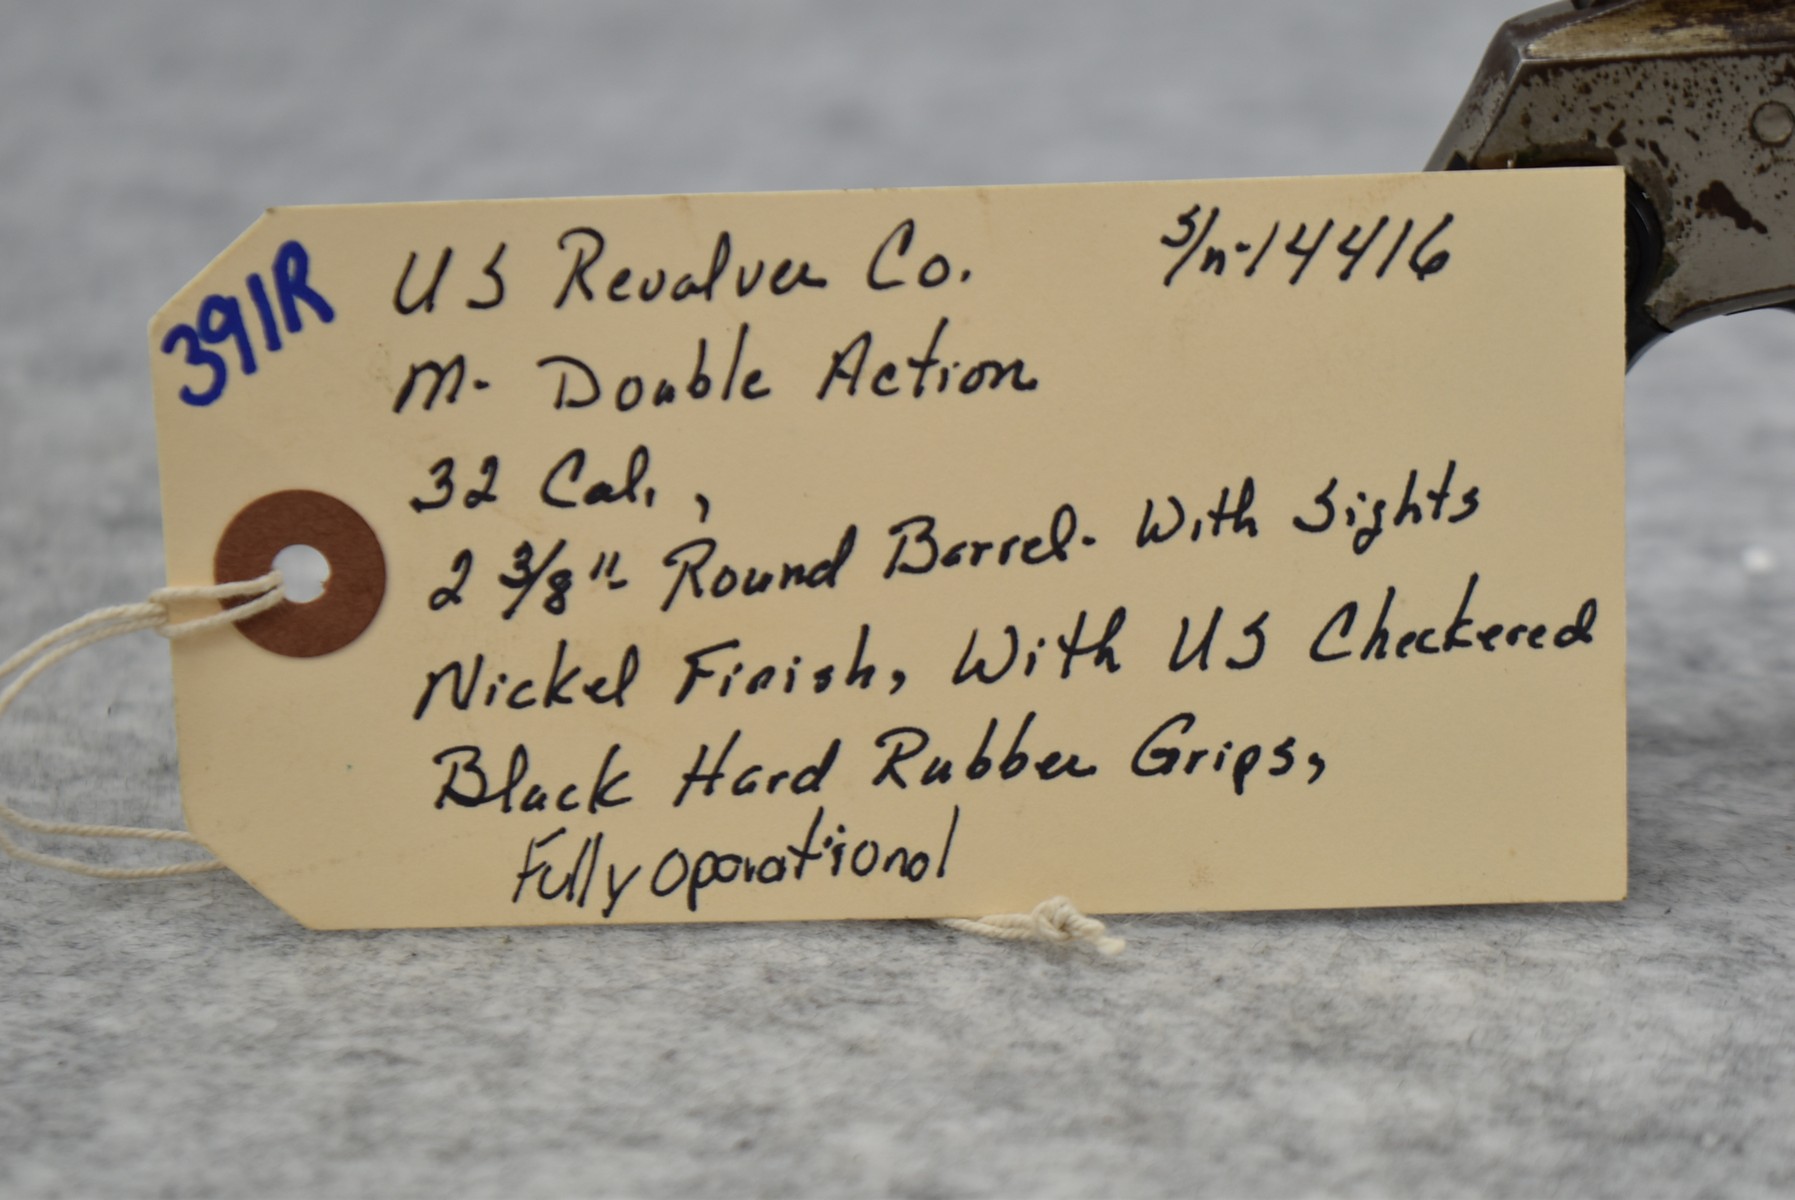 391R
US Revolver Co. S/n-14416
M- Double Action
32 Cal.,
2 3/8"- Round Barrel- With Sights
Nickel Finish, With US Checkered
Black Hard Rubber Grips,
Fully Operational